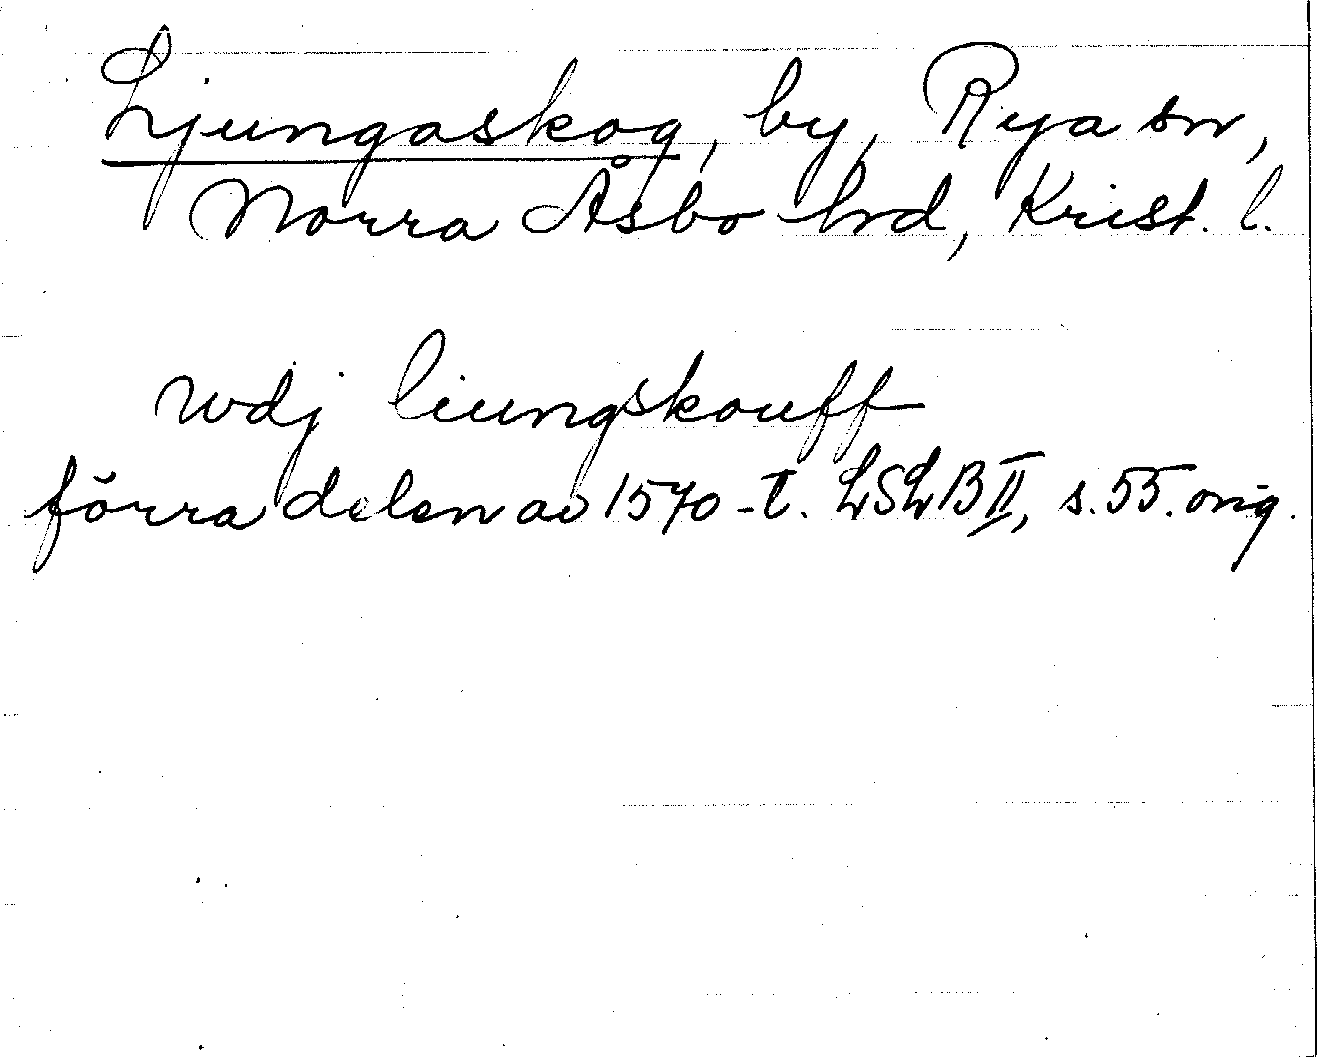 Ljungaskog, by, Rya sn,
Norra Åsbo hrd, Krist. l.
wdj liungskouff
förra delen av 1570-t. LSLB II, s. 55. orig.